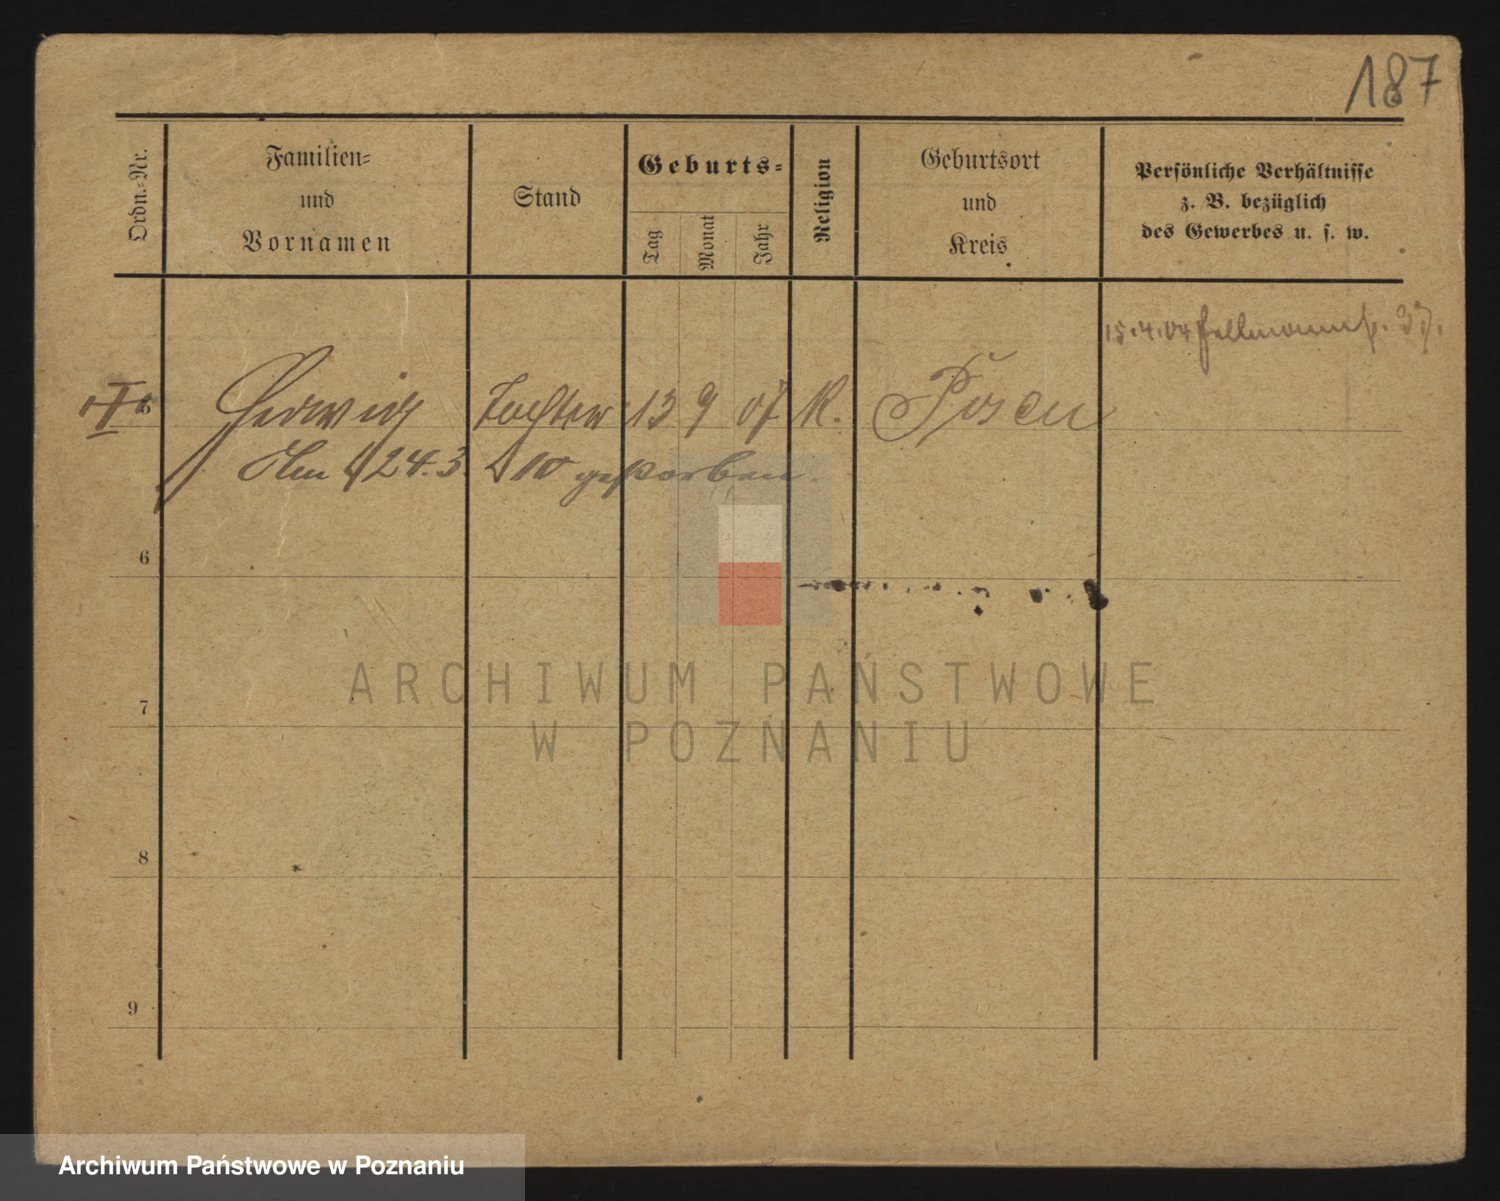 187
Ordn.-Nr.
Familien-
und
Vornamen
Stand
Geburts-
Tag
Monat
Jahr
Religion
Geburtsort
und
Kreis
Persönliche Verhältnisse
z. B. bezüglich
des Gewerbes u. s. w.
15.4.04 37.
5 Hedwig Tochter 13 9 07 K. Posen
Am 24.3. 10 gestorben.
6
7
8
9
ARCHIWUM PAŃSTWOWE
W POZNANIU
Archiwum Państwowe w Poznaniu